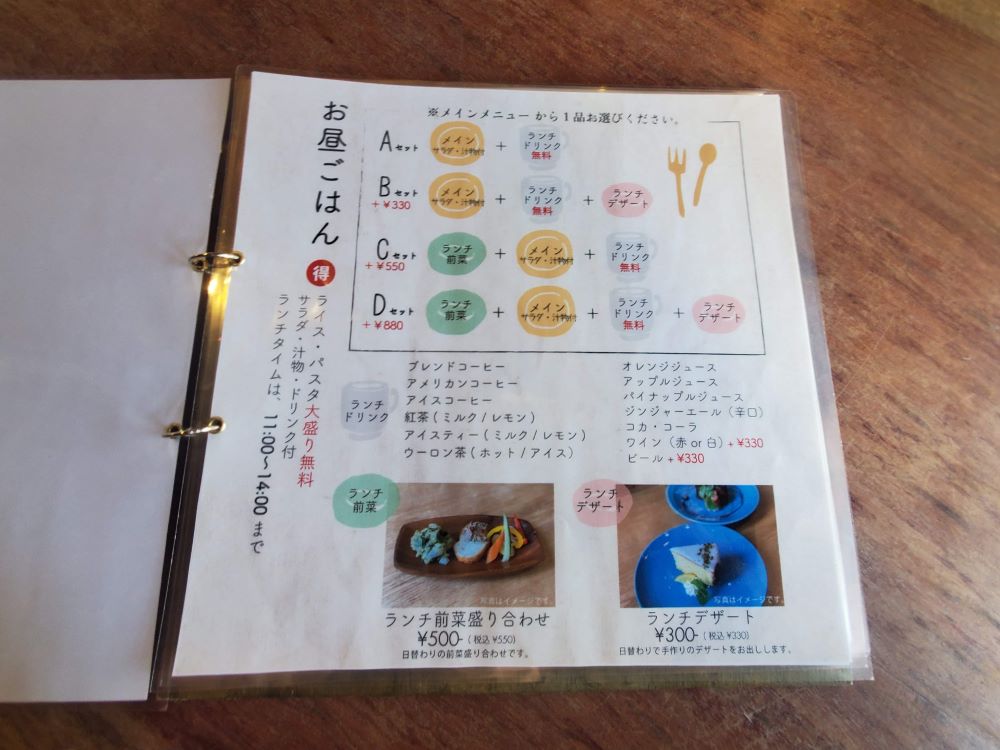 お昼ごはん 得
ライス・パスタ大盛り無料
サラダ・汁物・ドリンク付
ランチタイムは、11:00〜14:00まで
※メインメニューから1品お選びください。
Aセット
メイン
サラダ・汁物付
+
ランチ
ドリンク
無料
Bセット
+¥330
メイン
サラダ・汁物付
+
ランチ
ドリンク
無料
+
ランチ
デザート
Cセット
+¥550
ランチ
前菜
+
メイン
サラダ・汁物付
+
ランチ
ドリンク
無料
Dセット
+¥880
ランチ
前菜
+
メイン
サラダ・汁物付
+
ランチ
ドリンク
無料
+
ランチ
デザート
ランチ
ドリンク
ブレンドコーヒー
アメリカンコーヒー
アイスコーヒー
紅茶(ミルク/レモン)
アイスティー(ミルク/レモン)
ウーロン茶(ホット/アイス)
オレンジジュース
アップルジュース
パイナップルジュース
ジンジャーエール(辛口)
コカ・コーラ
ワイン(赤or白)+¥330
ビール+¥330
ランチ
前菜
写真はイメージです。
ランチ前菜盛り合わせ
¥500-(税込¥550)
日替わりの前菜盛り合わせです。
ランチ
デザート
写真はイメージです。
ランチデザート
¥300-(税込¥330)
日替わりで手作りのデザートをお出しします。